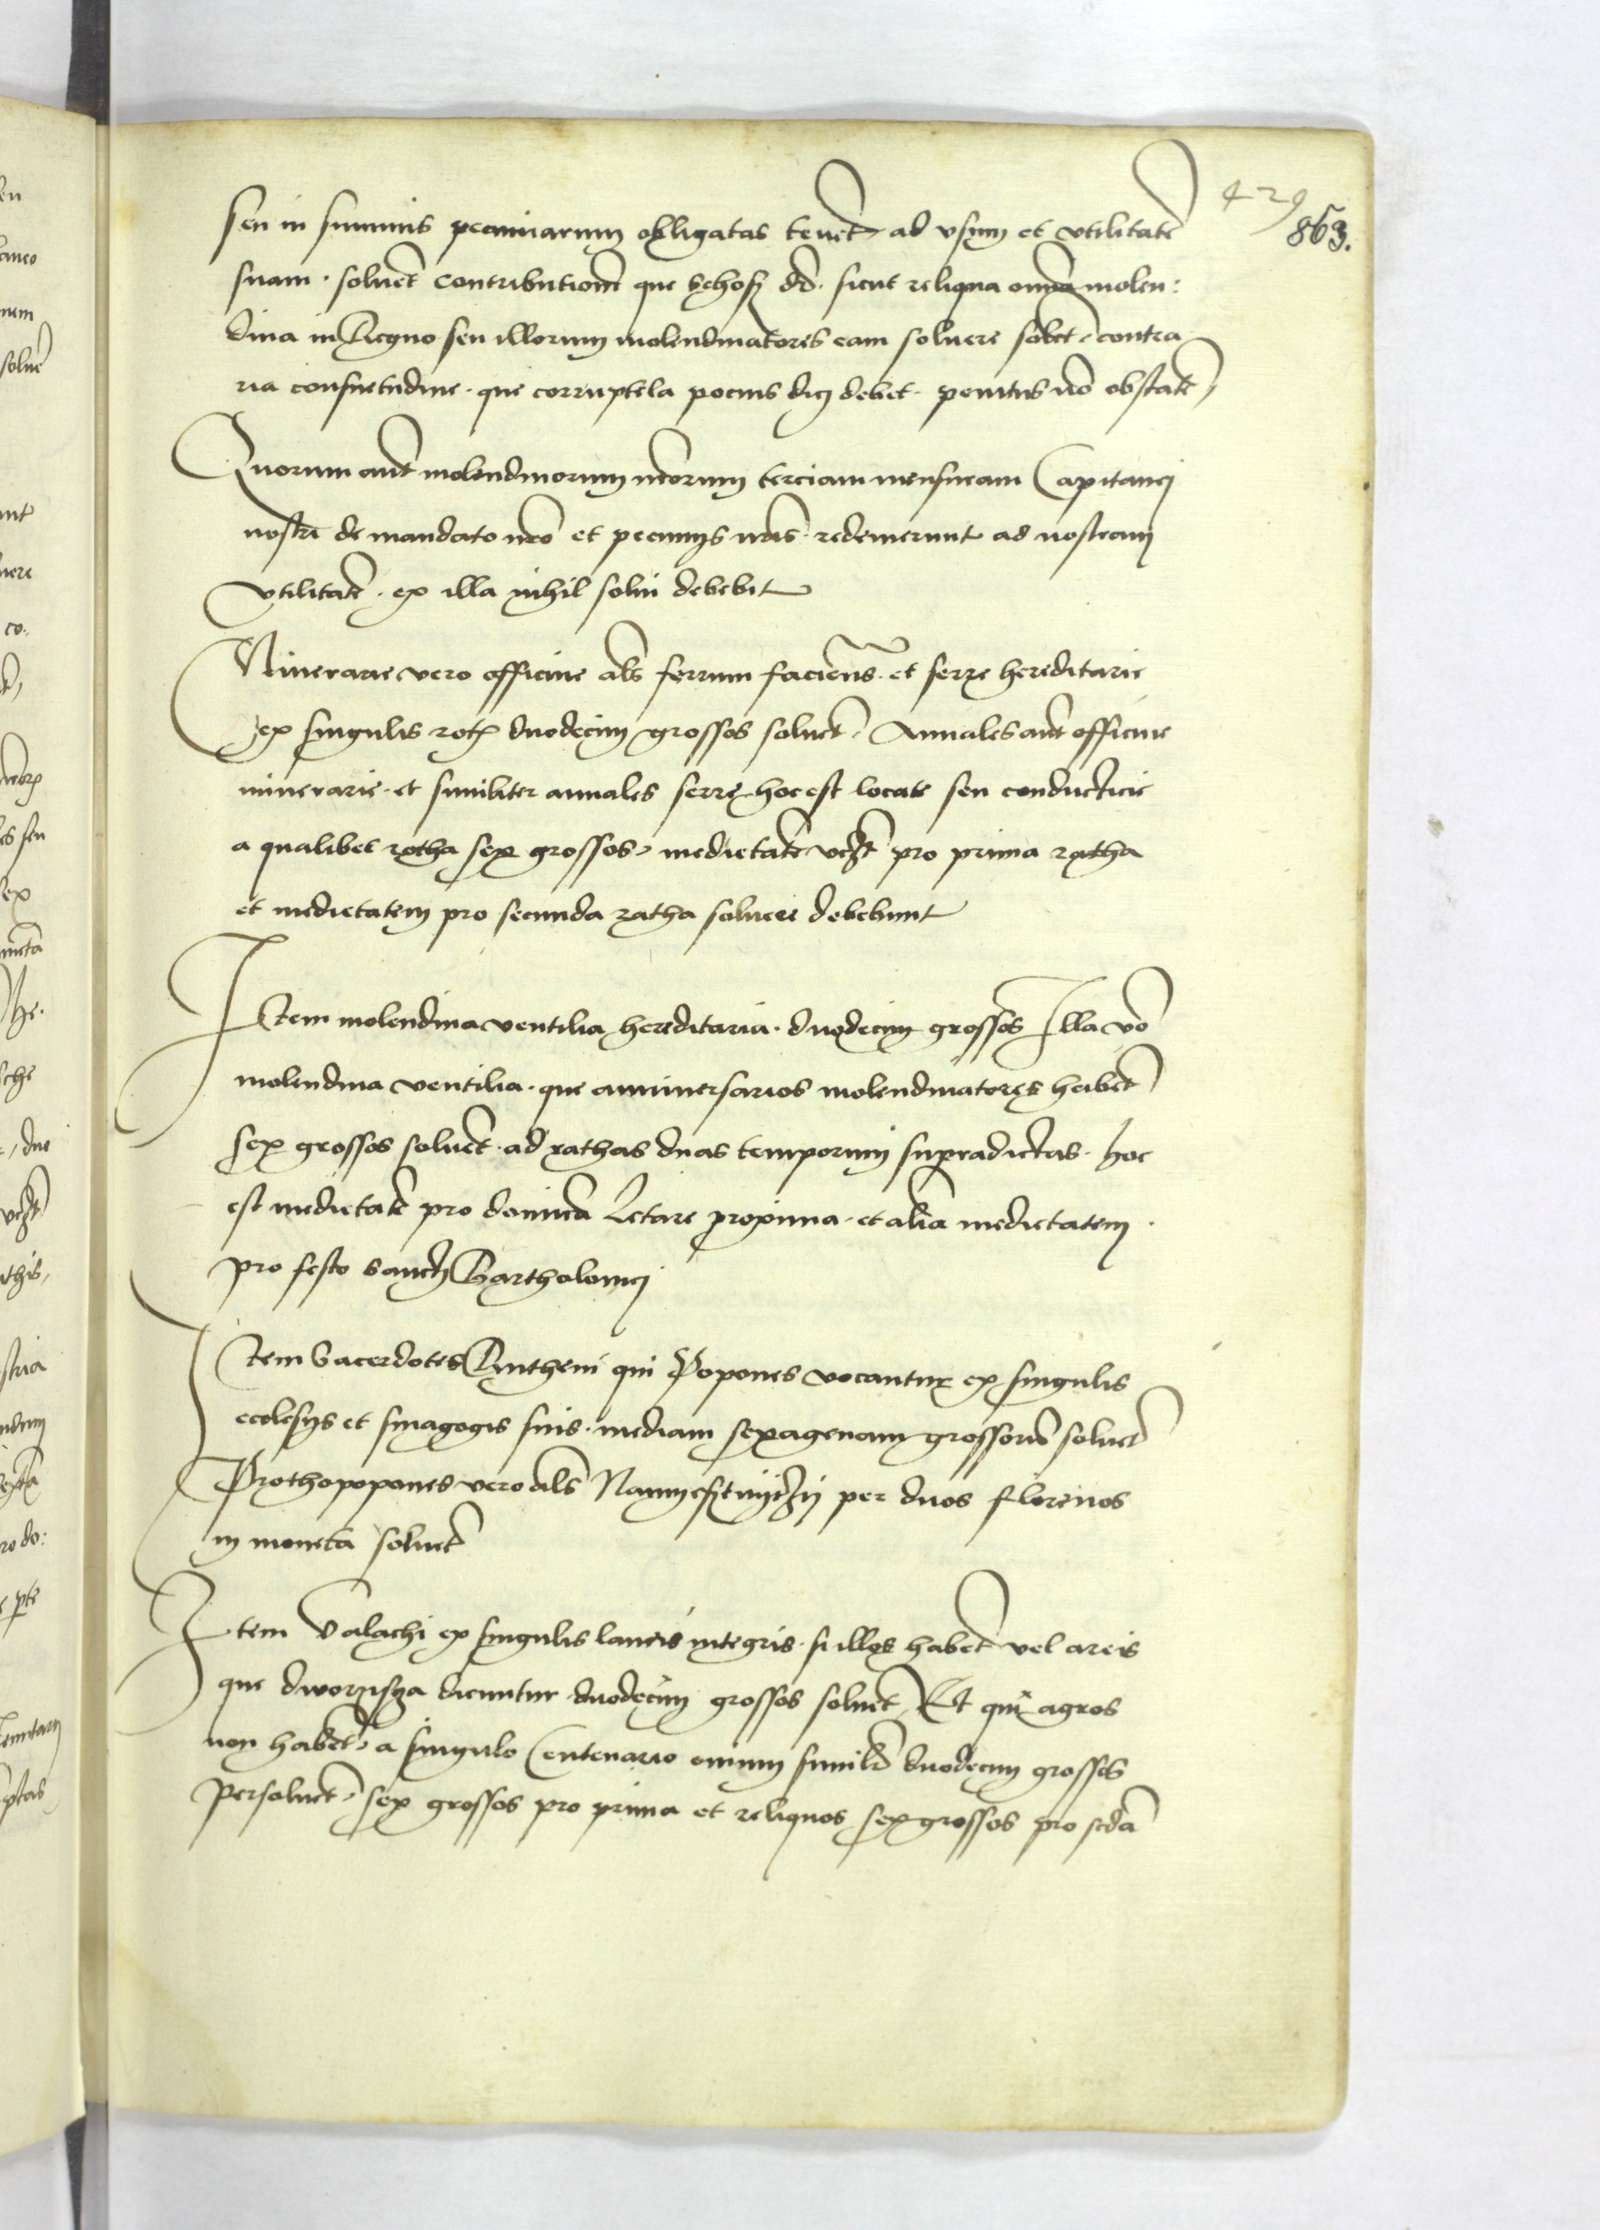 429
863.
seu in summis pecuniarum obligatas tenet, ad vsum et vtilitatē
suam. soluēt contributionē que schosz dr̄. sicut reliqua omnia molen:
dina in Regno seu illorum molendinatores eam soluere solēt, contra
ria consuetudine. que corruptela pocius dicj debet. penitus nō obstātē
Quorum autē molendinorum nr̄orum terciam mensuram Capitanej
nostri de mandato nr̄o et pecunijs nr̄is redemerunt ad nostram
vtilitatē. ex illa nihil solui debebit
Minerarie vero officine al̄s ferrum faciēn̄s. et serre hereditarie
ex singulis rotis duodecim grossos soluēt. Annales autē officine
minerarie. et similiter annales serre, hoc est locate seu conducticie
a qualibet rotha sex grossos, medietatē vcz̄t pro prima ratha
et medietatem pro secunda ratha soluere debebunt
Item molendina ventilia hereditaria. duodecim grossos Illa vō
molendina ventilia. que anniuersarios molendinatores habēt
sex grossos soluēt. ad rathas duas temporum supradictas. hoc
est medietatē pro dominica Letare proxima. et aliā medietatem.
pro festo sanctj Bartholomej
Item Sacerdotes Rutheni qui Popones vocantur ex singulis
ecclesijs et sinagogis suis. mediam sexagenam grossorū soluēt
Prothopopones vero al̄s Namyesztnijczij per duos florenos
in moneta soluēt
Item Valachi ex singulis laneis integris. si illos habēt vel areis
que dworziscza dicuntur duodecim grossos soluēt, Et qui agros
non habēt, a singulo Centenario ouium similr̄ duodecim grossos
persoluēt, sex grossos pro prima et reliquos sex grossos pro secd̄a